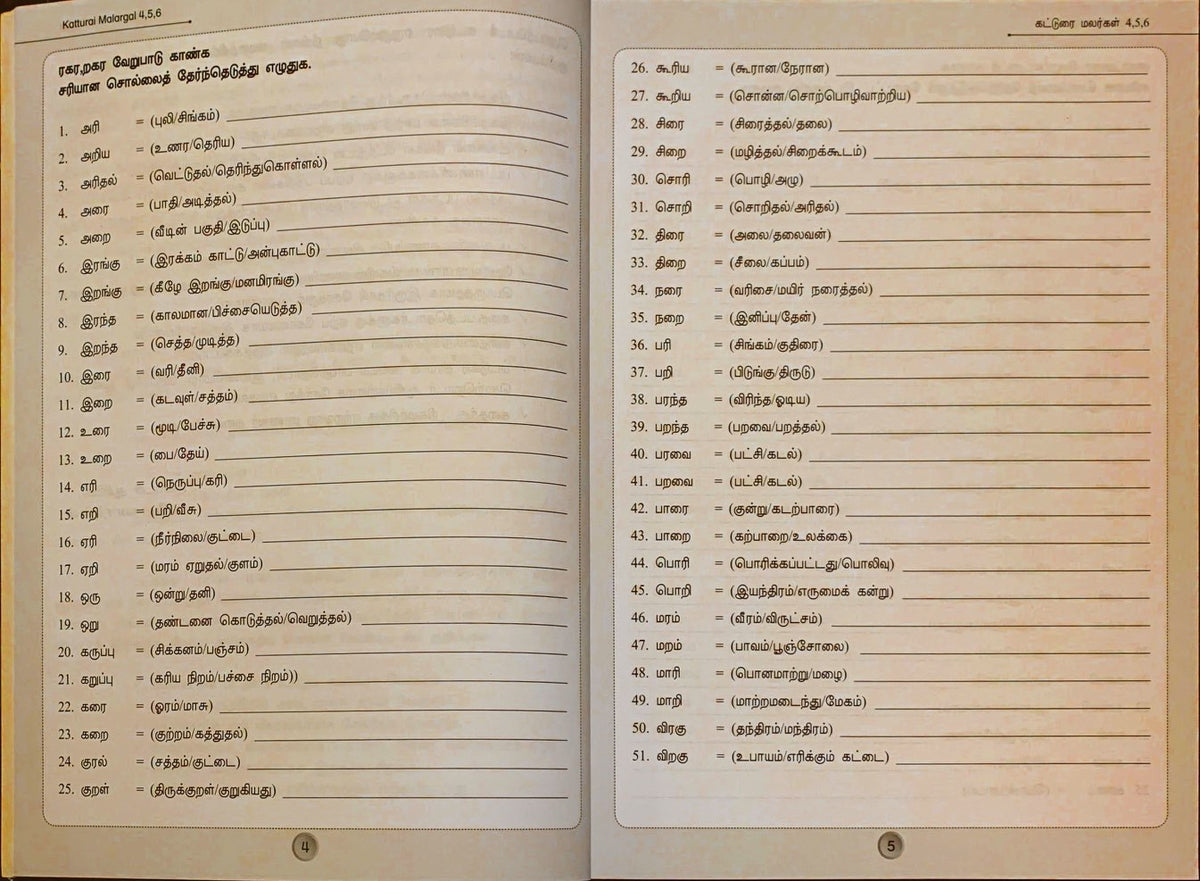 Katturai Malargal 4,5,6
ரகர,றகர வேறுபாடு காண்க
சரியான சொல்லைத் தேர்ந்தெடுத்து எழுதுக.
1. அரி = (புலி/சிங்கம்)
2. அறிய = (உணர/தெரிய)
3. அரிதல் = (வெட்டுதல்/தெரிந்துகொள்ளல்)
4. அரை = (பாதி/அடித்தல்)
5. அறை = (வீடின் பகுதி/இடுப்பு)
6. இரங்கு = (இரக்கம் காட்டு/அன்புகாட்டு)
7. இறங்கு = (கீழே இறங்கு/மனமிரங்கு)
8. இரந்த = (காலமான/பிச்சையெடுத்த)
9. இறந்த = (செத்த/முடித்த)
10. இரை = (வரி/தீனி)
11. இறை = (கடவுள்/சத்தம்)
12. உரை = (மூடி/பேச்சு)
13. உறை = (பை/தேய்)
14. எரி = (நெருப்பு/கரி)
15. எறி = (பறி/வீசு)
16. ஏரி = (நீர்நிலை/குட்டை)
17. ஏறி = (மரம் ஏறுதல்/குளம்)
18. ஒரு = (ஒன்று/தனி)
19. ஒறு = (தண்டனை கொடுத்தல்/வெறுத்தல்)
20. கருப்பு = (சிக்கனம்/பஞ்சம்)
21. கறுப்பு = (கரிய நிறம்/பச்சை நிறம்))
22. கரை = (ஓரம்/மாசு)
23. கறை = (குற்றம்/கத்துதல்)
24. குரல் = (சத்தம்/குட்டை)
25. குறள் = (திருக்குறள்/குறுகியது)
4
கட்டுரை மலர்கள் 4,5,6
26. கூரிய = (கூரான/நேரான)
27. கூறிய = (சொன்ன/சொற்பொழிவாற்றிய)
28. சிரை = (சிரைத்தல்/தலை)
29. சிறை = (மழித்தல்/சிறைக்கூடம்)
30. சொரி = (பொழி/அழு)
31. சொறி = (சொறிதல்/அரிதல்)
32. திரை = (அலை/தலைவன்)
33. திறை = (சீலை/கப்பம்)
34. நரை = (வரிசை/மயிர் நரைத்தல்)
35. நறை = (இனிப்பு/தேன்)
36. பரி = (சிங்கம்/குதிரை)
37. பறி = (பிடுங்கு/திருடு)
38. பரந்த = (விரிந்த/ஓடிய)
39. பறந்த = (பறவை/பறத்தல்)
40. பரவை = (பட்சி/கடல்)
41. பறவை = (பட்சி/கடல்)
42. பாரை = (குன்று/கடற்பாரை)
43. பாறை = (கற்பாறை/உலக்கை)
44. பொரி = (பொரிக்கப்பட்டது/பொலிவு)
45. பொறி = (இயந்திரம்/எருமைக் கன்று)
46. மரம் = (வீரம்/விருட்சம்)
47. மறம் = (பாவம்/பூஞ்சோலை)
48. மாரி = (பொனமாற்று/மழை)
49. மாறி = (மாற்றமடைந்து/மேகம்)
50. விரகு = (தந்திரம்/மந்திரம்)
51. விறகு = (உபாயம்/எரிக்கும் கட்டை)
5